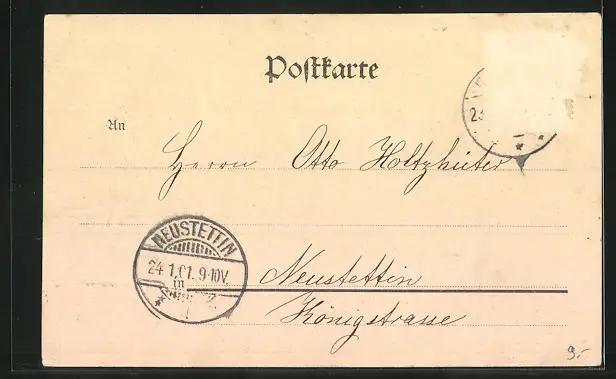 Postkarte
23
An
Herrn Otto Holtzhüter
NEUSTETTIN
24.1.01. 9-10V.
in
Neustettin
Königstrasse
9.-